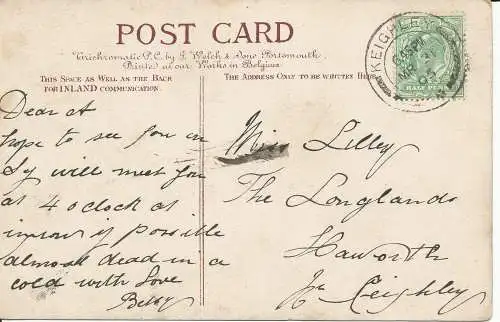 POST CARD
Varichromatic P.C. by J. Welch & Sons. Portsmouth.
Printed at our Works in Belgium
THIS SPACE AS WELL AS THE BACK
FOR INLAND COMMUNICATION.
THE ADDRESS ONLY TO BE WRITTEN HERE
KEIGHLEY
HALF PENNY
Dear A
hope to see you in
will meet you
at 4 o clock at
if possible
almost dead in a
cold with Love
Betsy
Miss Lilley
The Longlands
Haworth
Nr Keighley